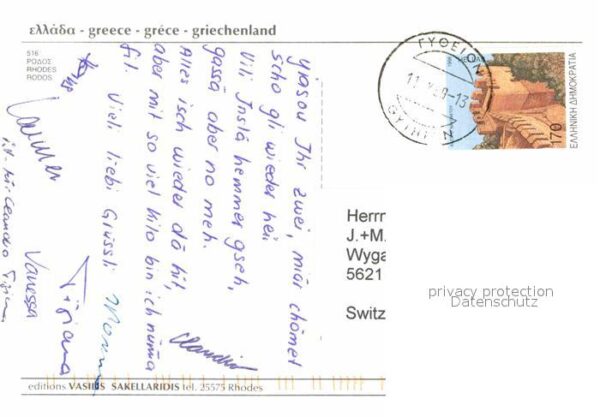 ελλάδα - greece - gréce - griechenland
516
ΡΟΔΟΣ
RHODES
RODOS
Yiasou Ihr zwei, miär chömet
scho gli wieder hei.
Vili Inslä hemmer gseh,
gassä aber no meh.
Alles isch wieder dä hit,
aber mit so viel kilo bin ich nüma
fit. Vieli liebi Grüssli
Claudio
Tiziana
Vanessa
ΓΥΘΕΙΟΝ
170
ΕΛΛΗΝΙΚΗ ΔΗΜΟΚΡΑΤΙΑ
Herrn
J.+M.
Wyga
5621
Switz
privacy protection
Datenschutz
editions VASILIS SAKELLARIDIS tel. 25575 Rhodes